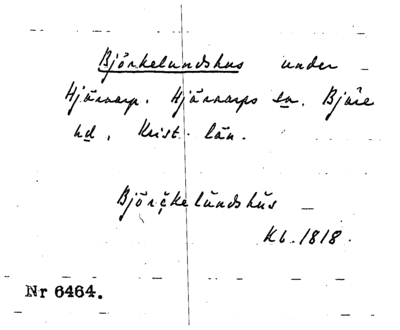 Björkelundshus under
Hjärnarp. Hjärnarps sn. Bjäre
hd. Krist. län.
Björckelundshus
Kb. 1818.
Nr 6464.